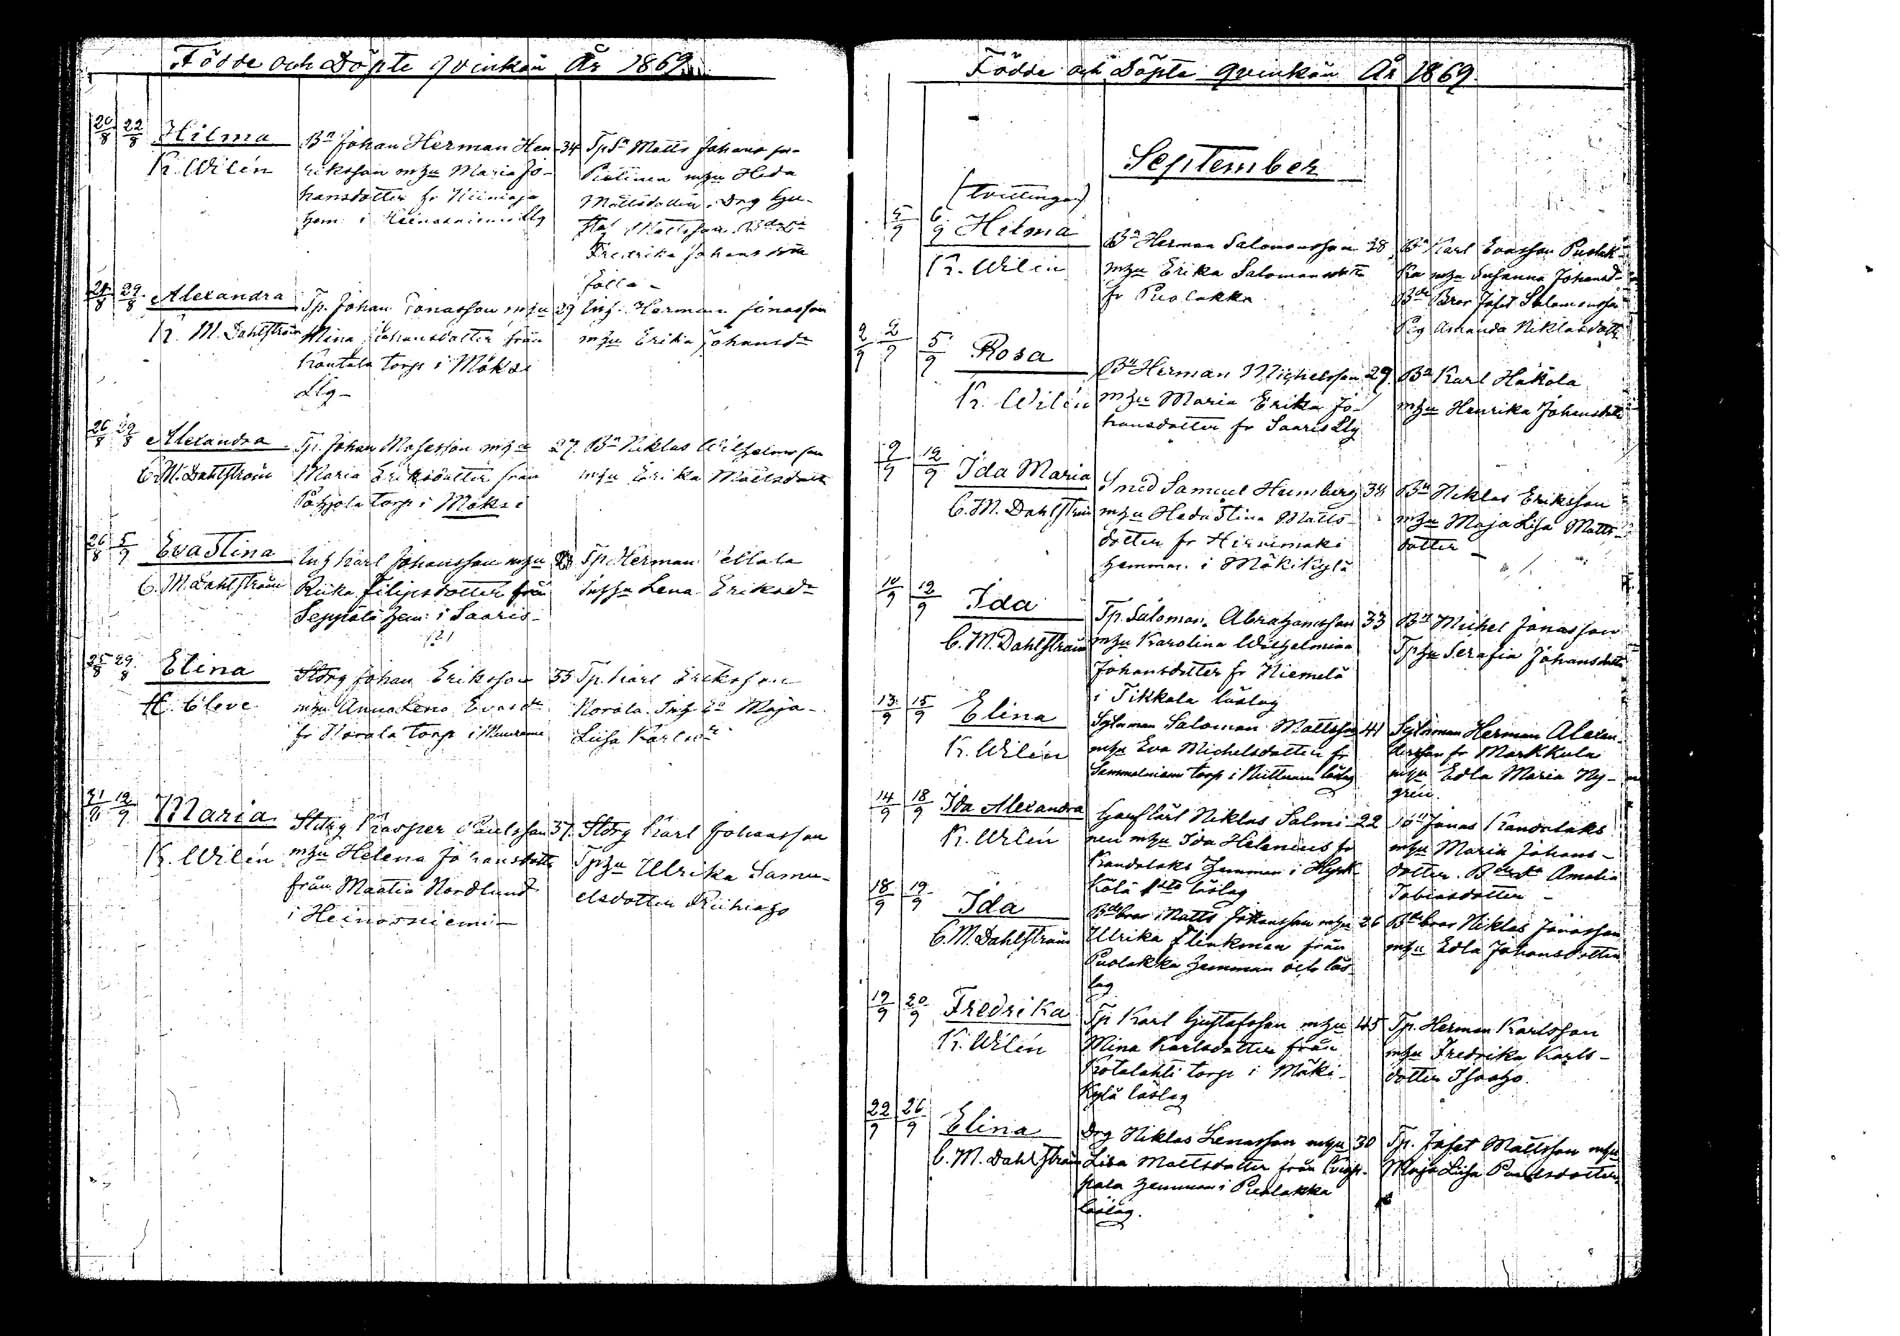 Födde och Döpte qvinkön År 1869.
20/8 22/8 Hilma
K. Wilén
Bn Johan Herman Hen-
riksson m hu Maria Jo-
hansdotter fr Niinioja
hem. i Heinosniemi Llg
34
Tp Sn Matts Johansson
Piilinen m hu Heda
Mattsdotter. Drg Gu-
staf Mattsson
Fredrika Johansdotter
24/8 29/8 Alexandra
K. M. Dahlström
Tp. Johan Jonasson m hu
Mina Johansdotter från
Kantala torp i Möksi
Llg
29
Inh. Herman Jonasson
m hu Erika Johansdr
26/8 29/8 Alexandra
C. M. Dahlström
Tp. Johan Mosesson m hu
Maria Eriksdotter från
Pohjola torp i Möksi
27.
Bn Niklas Wilhelmsson
m hu Erika Mattsdotter
26/8 5/9 Eva Stina
C. M. Dahlström
Inh Karl Johansson m hu
Riika Filipsdotter från
Seppälä hem. i Saaris-
Tp. Herman Pellala
Lena Eriksdr
25/8 29/8 Elina
H. Cleve
Johan Eriksson
m hu Anna Lena Evasdr
fr Norola torp i Muurame
35
Tp. Karl Eriksson
Norola. Maja-
Lisa Karlsdr
31/8 12/9 Maria
K. Wilén
Kasper Paulsson
m hu Helena Johansdotter
från Maatia Nordlund
i Heinosniemi
37.
Karl Johansson
Tp hu Ulrika Samu-
elsdotter Riihiaho
Födde och Döpte qvinkön År 1869.
September
(tvillingar)
5/9 6/9 Hilma
K. Wilén
Bn Herman Salomonsson
m hu Erika Salomonsdotter
fr Puolakka
28
Bn Karl Evasson Puolak-
ka m hu Susanna Johansd-
Bde Bror Josef Salomonsson
Pig Amanda Niklasdotter
2/9 2/9 5/9 Rosa
K. Wilén
Bn Herman Michelsson
m hu Maria Erika Jo-
hansdotter fr Saaris Llg
29.
Bn Karl Hakola
m hu Henrika Johansdotter
9/9 12/9 Ida Maria
C. M. Dahlström
Smed Samuel Humberg
m hu Heda Stina Matts-
dotter fr Hirvimäki
hemman. i Mäkikylä
34
Bn Niklas Eriksson
m hu Maja Lisa Matts-
dotter
10/9 12/9 Ida
C. M. Dahlström
Tp. Salomon. Abrahamsson
m hu Karolina Wilhelmina
Johansdotter fr Niemelä
i Tikkala läslag
33
Bn Michel Jonasson
Tp hu Serafia Johansdotter
13/9 15/9 Elina
K. Wilén
Salomon Mattsson
m hu Eva Michelsdotter fr
torp i läslag
41
Herman Alexan-
dersson fr Markkula
m hu Edla Maria Ny-
grén
14/9 18/9 Ida Alexandra
K. Wilén
Niklas Salmi-
nen m hu Ida Helenius fr
Kandolaks hemman i Hyrk-
kölä läslag
22
Bn Jonas Kandolaks
m hu Maria Johans-
dotter. Amalia
Tobiasdotter
18/9 19/9 Ida
C. M. Dahlström
Bde bror Matts Johansson m hu
Ulrika Flinkman från
Puolakka hemman och läs
lag
26
Bde bror Niklas Jonasson
m hu Edla Johansdotter
19/9 20/9 Fredrika
K. Wilén
Tp Karl Gustafsson m hu
Mina Karlsdotter från
Kotalahti torp i Mäki-
kylä läslag
45
Tp. Herman Karlsson
m hu Fredrika Karls-
dotter Isoaho.
22/9 26/9 Elina
C. M. Dahlström
Drg Niklas Lenasson m hu
Lisa Mattsdotter från
hemman i Puolakka
läslag.
30
Tp. Josef Mattsson m hu
Maja Lisa Paulsdotter